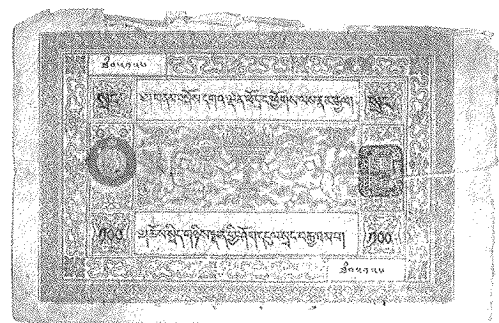 སྲང
༄༅།།གནམ་བསྐོས་དགའ་ལྡན་ཕོ་བྲང་ཕྱོགས་ལས་རྣམ་རྒྱལ།
སྲང
༡༠༠
ཆོས་སྲིད་གཉིས་ལྡན་གྱི་ཤོག་དངུལ་སྲང་བརྒྱ་ཐམ་པ།
༡༠༠